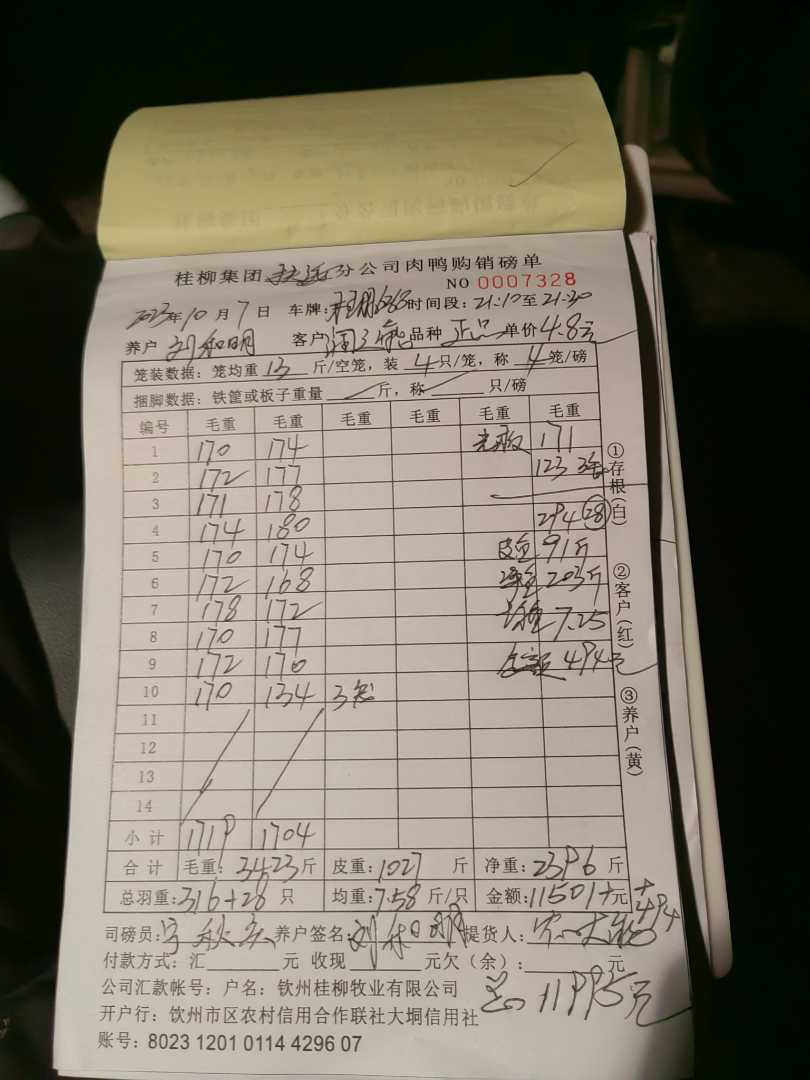 桂柳集团 分公司肉鸭购销磅单
NO 0007328
2023年10月7日 车牌: 6768 时间段:21:10至21:30
养户 刘和明 客户 品种 正品 单价4.8元
笼装数据:笼均重 13 斤/空笼,装 4 只/笼,称 4 笼/磅
捆脚数据:铁筐或板子重量 斤,称 只/磅
编号 毛重 毛重 毛重 毛重 毛重 毛重
1 170 174 171
2 172 177 123 3笼
3 171 178
4 174 180 294 28
5 170 174 皮重 91斤
6 172 168 净重 203斤
7 178 172 均重 7.25
8 170 177
9 172 170 金额 494元
10 170 134 3笼
11
12
13
14
小计 1719 1704
合计 毛重:3423斤 皮重:1027 斤 净重:2396 斤
总羽重:316+28 只 均重:7.58 斤/只 金额:11501元 +494
司磅员: 养户签名:刘和明 提货人:
付款方式:汇 元 收现 元欠(余): 元
公司汇款帐号:户名:钦州桂柳牧业有限公司
总 11995元
开户行:钦州市区农村信用合作联社大垌信用社
账号:8023 1201 0114 4296 07
①存根(白)
②客户(红)
③养户(黄)